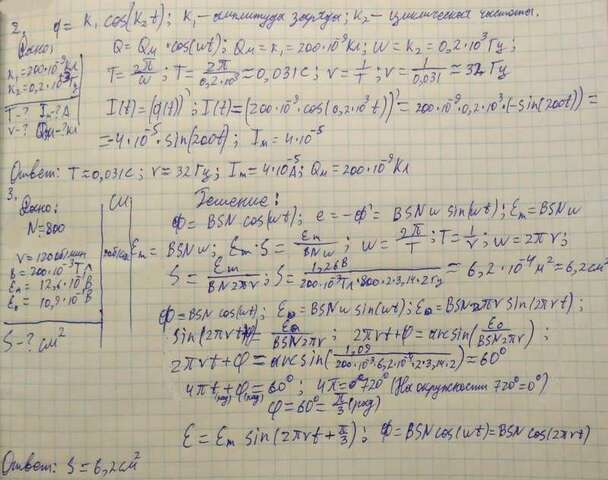 2. q = K₁ cos(K₂t); K₁ - амплитуда заряда; K₂ - циклическая частота.
Дано:
K₁=200·10⁻⁹Кл
K₂=0,2·10³Гц
T-? Iₘ-? A
ν-? Qₘ-? Кл
Q = Qₘ·cos(ωt); Qₘ=K₁=200·10⁻⁹Кл; ω=K₂=0,2·10³Гц;
T=2π/ω; T=2π/0,2·10³≈0,031с; ν=1/T; ν=1/0,031≈32Гц
I(t)=(q(t))'; I(t)=(200·10⁻⁹·cos(0,2·10³t))'=200·10⁻⁹·0,2·10³·(-sin(200t))=
=-4·10⁻⁵·sin(200t); Iₘ=4·10⁻⁵
Ответ: T≈0,031с; ν=32Гц; Iₘ=4·10⁻⁵A; Qₘ=200·10⁻⁹Кл
3.
Дано:
N=800
ν=120об/мин
B=200·10⁻³Тл
Ɛₘ=12,6·10⁻¹В
Ɛ₀=10,9·10⁻¹В
S-? см²
СИ
Решение:
Ф=BSN cos(ωt); e=-Ф'=BSNω sin(ωt); Ɛₘ=BSNω
Ɛₘ=BSNω; S=Ɛₘ/BNω; ω=2π/T; T=1/ν; ω=2πν;
S=Ɛₘ/BN2πν; S=1,26В/200·10⁻³Тл·800·2·3,14·2Гц≈6,2·10⁻⁴м²=6,2см²
Ф=BSN cos(ωt); Ɛ₀=BSNω sin(ωt); Ɛ₀=BSN·2πν sin(2πνt);
sin(2πνt+φ)=Ɛ₀/BSN2πν; 2πνt+φ=arcsin(Ɛ₀/BSN2πν);
2πνt+φ=arcsin(1,09/200·10⁻³·6,2·10⁻⁴·2·3,14·2)≈60°
4πt(рад)+φ(рад)=60°; 4π=720° (На окружности 720°=0°)
φ=60°=π/3(рад)
Ɛ=Ɛₘ sin(2πνt+π/3); Ф=BSNcos(ωt)=BSNcos(2πνt)
Ответ: S=6,2см²